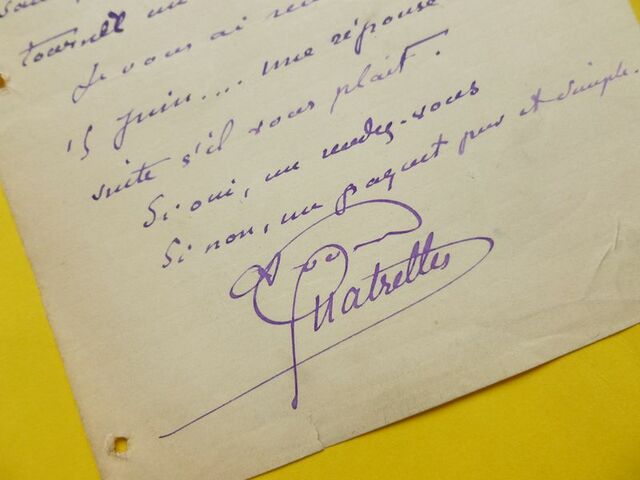 tournel un
Je vous ai
15 Juin.... une réponse
suite s'il vous plait.
Si oui, un rendez-vous
Si non, un paquet pur et simple.
Quatrelles